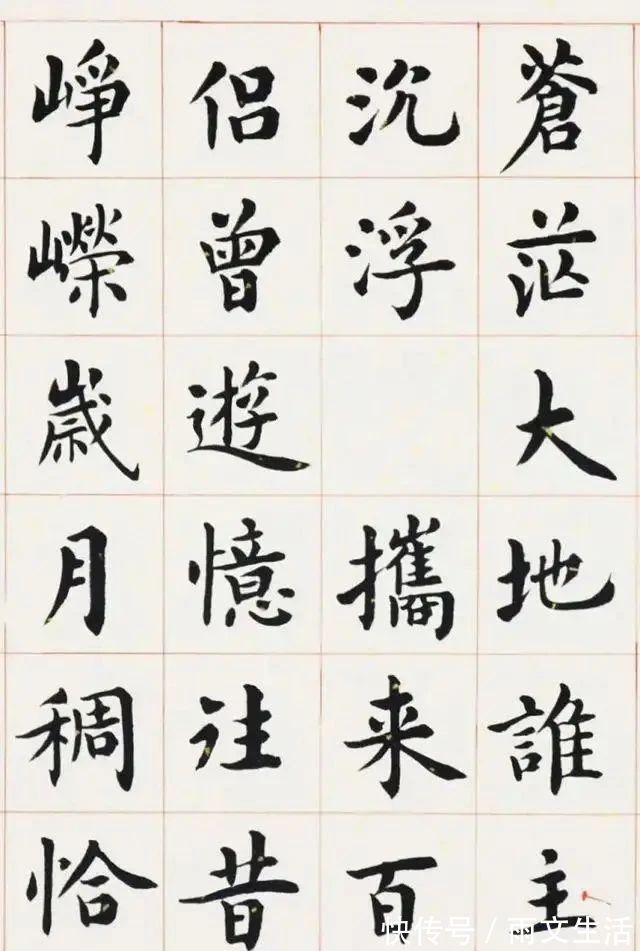 蒼茫大地誰主
沉浮 攜来百
侣曾遊憶往昔
崢嶸歲月稠恰
快传号 / 雨文生活